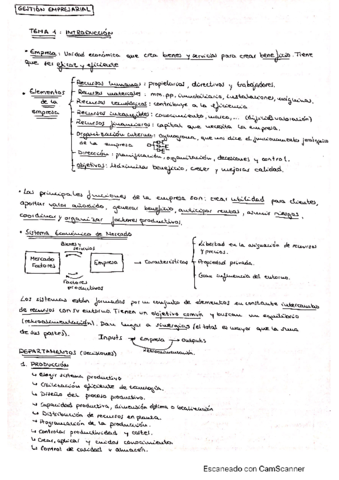 GESTIÓN EMPRESARIAL
TEMA 1: INTRODUCCIÓN
• Empresa: Unidad económica que crea bienes y servicios para crear beneficio. Tiene
que ser eficaz y eficiente
• Elementos de la empresa
Recursos humanos: propietarios, directivos y trabajadores.
Recursos materiales: mm.pp, inmobiliario, instalaciones, máquinas.
Recursos tecnológicos: contribuye a la eficiencia
Recursos intangibles: conocimiento, marca,... (difícil valoración)
Recursos financieros: capital que necesita la empresa.
Organización interna: organigrama, que nos dice el funcionamiento jerárquico
de la empresa
Dirección: planificación, organización, decisiones y control.
Objetivos: Maximizar beneficio, crecer y mejorar calidad.
• Las principales funciones de la empresa son: crear utilidad para clientes,
aportar valor añadido, generar beneficio, anticipar rentas, asumir riesgos,
coordinar y organizar factores productivos.
• Sistema Económico de Mercado
Bienes y servicios
Mercado Factores
Empresa
Factores productivos
Características
Libertad en la asignación de recursos
y precios.
Propiedad privada.
Gran influencia del entorno.
Los sistemas están formados por un conjunto de elementos en constante intercambio
de recursos con su entorno. Tienen un objetivo común y buscan un equilibrio
(retroalimentación). Da lugar a sinergias (el total es mayor que la suma
de sus partes).
Inputs → empresa → outputs
retroalimentación
DEPARTAMENTOS (decisiones)
1. PRODUCCIÓN
↳ Elegir sistema productivo
↳ Utilización eficiente de tecnología.
↳ Diseño del proceso productivo.
↳ Capacidad productiva, dimensión óptima o localización
↳ Distribución de recursos en planta.
↳ Programación de la producción.
↳ Controlar productividad y costes.
↳ Crear, aplicar y cuidar conocimiento
↳ Control de calidad y almacén.
Escaneado con CamScanner